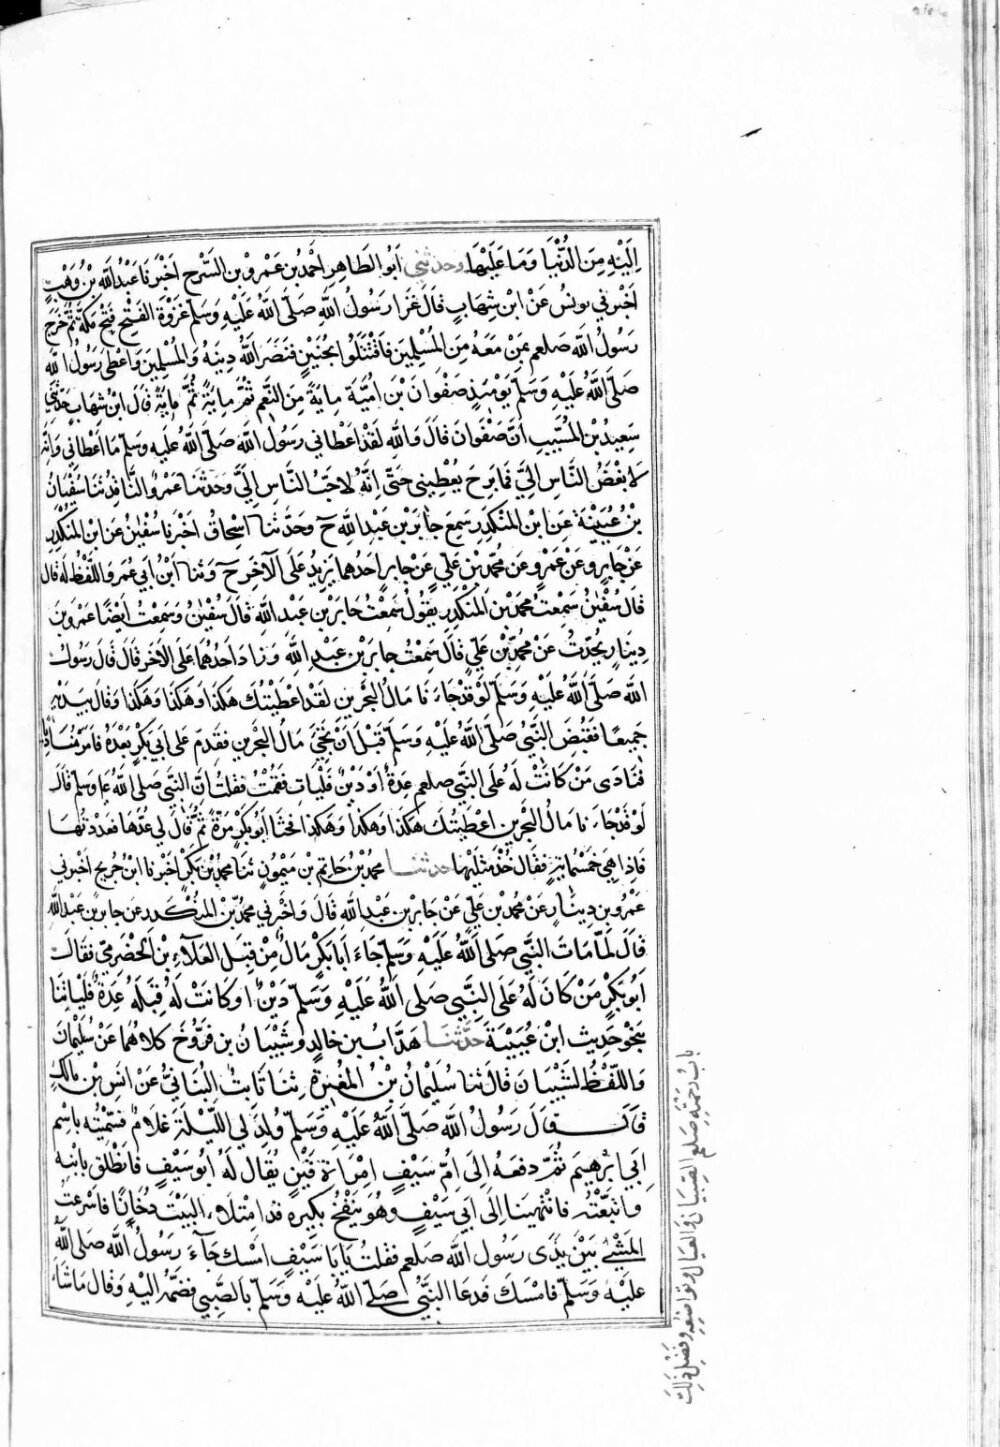 اِلَيْهِ مِنَ الدُّنْيَا وَمَا عَلَيْهَا وحدثني اَبُو الطَاهِرِ اَحْمَدُ بْنُ عَمْرِو بْنِ السَّرْحِ اَخْبَرَنَا عَبْدُ اللّٰه بْنُ وَهْبٍ
اَخْبَرَنِي يونسُ عَنْ ابْنِ شِهَابٍ قالَ غَزَا رَسُولُ اللّٰهِ صَلَّى اللّٰهُ عَلَيْهِ وَسَلَّم غَزْوَةَ الفَتْحِ فَتْحِ مَكَّةَ ثُمَّ خَرَجَ
رَسُولُ اللّٰه صلعم بِمَنْ مَعَهُ مِنَ المُسْلِمِينَ فَاقْتَتَلُوا بِحُنَيْنٍ فَنَصَرَ اللّٰهُ دِينَهُ وَالمُسْلِمِينَ وَاَعْطَى رَسُولُ اللّٰه
صَلَّى اللّٰهُ عَلَيْهِ وَسَلَّمَ يَوْمَئِذٍ صَفْوَانَ بْنَ اُمَيَّةَ مِايَةً مِنَ النَّعَمِ ثُمَّ مِايَةً ثُمَّ مِايَةً قالَ ابْنُ شِهَابٍ حَدَّثَنِي
سَعِيدُ بْنُ المُسَيَّبِ اَنَّ صَفْوَانَ قالَ وَاللّٰهِ لَقَدْ اَعْطَانِي رَسُولُ اللّٰه صَلَّى اللّٰهُ عَلَيْهِ وَسَلَّم مَا اَعْطَانِي وَاِنَّهُ
لَابْغَضُ النَّاسِ اِلَيَّ فَمَا بَرِحَ يُعْطِينِي حَتَّى اِنَّهُ لاَحَبُّ النَّاسِ اِلَيَّ وَحَدَّثَنَا عَمْرٌو النَّاقِدُ ثَنَا سُفْيَانُ
بْنُ عُيَيْنَةَ عَنِ ابْنِ المُنْكَدِرِ سَمِعَ جَابِرَ بْنَ عَبْدِ اللّٰه ح وَحَدَّثَنَا اِسْحَاقُ اَخْبَرَنَا سُفْيٰنُ عَنِ ابْنِ المُنْكَدِرِ
عَنْ جَابِرٍ وَعَنْ عَمْرٍو عَنْ مُحَمَّدِ بْنِ عَلِيٍّ عَنْ جَابِرٍ اَحَدُهُمَا يَزِيدُ عَلَى الآخَرِ ح وَثَنَا ابْنُ اَبِي عُمَرَ وَاللَّفْظُ لَهُ قَالَ
قالَ سُفْيٰنُ سَمِعْتُ مُحَمَّدَ بْنَ المُنْكَدِرِ يَقُولُ سَمِعْتُ جَابِرَ بْنَ عَبْدِ اللّٰهِ قالَ سُفْيٰنُ وَسَمِعْتُ اَيْضًا عَمْرَو بْنَ
دِينَارٍ يُحَدِّثُ عَنْ مُحَمَّدِ بْنِ عَلِيٍّ قالَ سَمِعْتُ جَابِرَ بْنَ عَبْدِ اللّٰهِ وَزَادَ اَحَدُهُمَا عَلَى الاٰخَرِ قالَ قالَ رَسُولُ
اللّٰه صَلَّى اللّٰهُ عَلَيْهِ وَسَلَّمَ لَوْ قَدْ جَاءَنَا مَالُ البَحْرَيْنِ لَقَدْ اَعْطَيْتُكَ هَكَذَا وَهَكَذَا وَهَكَذَا وَقَالَ بِيَدَيْهِ
جَمِيعًا فَقُبِضَ النَّبِيُّ صَلَّى اللّٰهُ عَلَيْهِ وَسَلَّمَ قَبْلَ اَنْ يَجِئَ مَالُ البَحْرَيْنِ فَقَدِمَ عَلَى اَبِي بَكْرٍ بَعْدَهُ فَاَمَرَ مُنَادِيًا
فَنَادَى مَنْ كَانَتْ لَهُ عَلَى النَّبِيِّ صلعم عِدَةٌ اَوْ دَيْنٌ فَلْيَاتِ فَقُمْتُ فَقُلْتُ اِنَّ النَّبِيَّ صَلَّى اللّٰهُ ع‍ وسلم قَالَ
لَوْ قَدْ جَاءَنَا مَالُ البَحْرَيْنِ اَعْطَيْتُكَ هَكَذَا وَهَكَذَا وَهَكَذَا فَحَثَا اَبُو بَكْرٍ مَرَّةً ثُمَّ قَالَ لِي عُدَّهَا فَعَدَدْتُهَا
فَاِذَا هِيَ خَمْسُمِايَةٍ فَقَالَ خُذْ مِثْلَيْهَا حدثنا مُحَمَّدُ بْنُ حَاتِمِ بْنِ مَيْمُونٍ ثَنَا مُحَمَّدُ بْنُ بَكْرٍ اَخْبَرَنَا ابْنُ جُرَيجٍ اَخْبَرَنِي
عَمْرُو بْنُ دِينَارٍ عَنْ مُحَمَّدِ بْنِ عَلِيٍّ عَنْ جَابِرِ بْنِ عَبْدِ اللّٰهِ قالَ وَاَخْبَرَنِي مُحَمَّدُ بْنُ المُنْكَدِرِ عَنْ جَابِرِ بْنِ عَبْدِ اللّٰهِ
قالَ لَمَّا مَاتَ النَّبِيُّ صَلَّى اللّٰهُ عَلَيْهِ وَسَلَّمَ جَاءَ اَبَا بَكْرٍ مَالٌ مِنْ قِبَلِ العَلاَءِ بْنِ الحَضْرَمِيِّ فَقَالَ
اَبُو بَكْرٍ مَنْ كَانَ لَهُ عَلَى النَّبِيِّ صَلَّى اللّٰهُ عَلَيْهِ وَسَلَّمَ دَيْنٌ اَوْ كَانَتْ لَهُ قِبَلَهُ عِدَةٌ فَلْيَاتِنَا
بِنَحْوِ حَدِيثِ ابْنِ عُيَيْنَةَ حَدَّثَنَا هَدَّابُ بْنُ خَالِدٍ وَشَيْبَانُ بْنُ فَرُّوخَ كِلاَهُمَا عَنْ سُلَيْمَانَ
وَاللَّفْظُ لِشَيْبَانَ قَالَ ثَنَا سُلَيْمَانُ بْنُ المُغِيرَةِ ثَنَا ثَابِتٌ البُنَانِيُّ عَنْ اَنَسِ بْنِ مَالِكٍ
قَالَ قَالَ رَسُولُ اللّٰه صَلَّى اللّٰهُ عَلَيْهِ وَسَلَّمَ وُلِدَ لِي اللَّيْلَةَ غُلاَمٌ فَسَمَّيْتُهُ بِاسْمِ
اَبِي اِبْرٰهِيمَ ثُمَّ دَفَعَهُ اِلَى اُمِّ سَيْفٍ اِمْرَاَةِ قَيْنٍ يُقَالُ لَهُ اَبُو سَيْفٍ فَانْطَلَقَ يَاتِيهِ
وَاتَّبَعْتُهُ فَانْتَهَيْنَا اِلَى اَبِي سَيْفٍ وَهُوَ يَنْفُخُ بِكِيرِهِ قَدِ امْتَلاَءَ البَيْتُ دُخَانًا فَاَسْرَعْتُ
المَشْيَ بَيْنَ يَدَيْ رَسُولِ اللّٰه صلعم فَقُلْتُ يَا بَا سَيْفٍ اَمْسِكْ جَاءَ رَسُولُ اللّٰه صَلَّى اللّٰهُ
عَلَيْهِ وَسَلَّمَ فَاَمْسَكَ فَدَعَا النَّبِيُّ صَلَّى اللّٰهُ عَلَيْهِ وَسَلَّمَ بِالصَّبِيِّ فَضَمَّهُ اِلَيْهِ وَقَالَ مَا شَاءَ
بابُ رَحْمَتِهِ صَلعم الصِّبْيَانَ وَالعِيَالَ وتَوَاضُعِهِ وَفَضْلِ ذَلِكَ